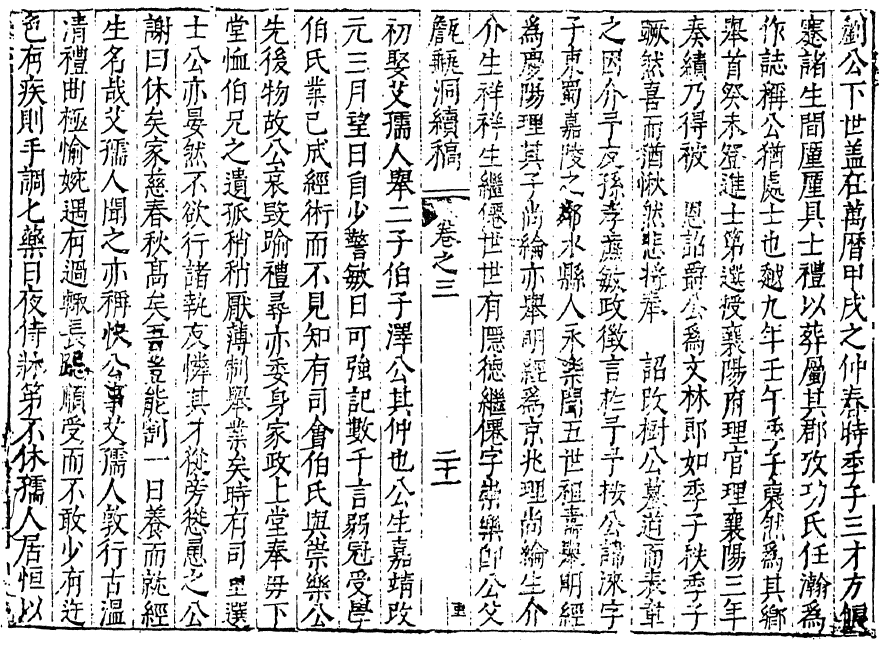 劉公下世蓋在萬曆甲戌之仲春時季子三才方
蹇諸生間厪厪具士禮以葬屬其郡攷功氏任瀚為
作誌稱公猶處士也越九年壬午季子裒然為其鄉
舉首癸未登進士第選授襄陽府理官理襄陽三年
奏績乃得被 恩詔爵公為文林郎如季子秩季子
蹶然喜而猶愀然悲將奉 詔改樹公墓道而表章
之因介予友孫孝廉敏政徵言於予予按公諱淶字
子東蜀嘉陵之鄰水縣人永樂間五世祖壽舉明經
為慶陽理其子尚綸亦舉明經為京兆理尚綸生介
介生祥祥生繼僊世世有隱德繼僊字崇樂即公父
甔甀洞續稿 卷之三 二十一
初娶艾孺人舉二子伯子澤公其仲也公生嘉靖改
元三月望日自少警敏日可強記數千言弱冠受學
伯氏業已成經術而不見知有司會伯氏與崇樂公
先後物故公哀毀踰禮尋亦委身家政上堂奉毋下
堂恤伯兄之遺孤稍稍厭薄制舉業矣時有司里選
士公亦晏然不欲行諸執友憐其才從旁慫恿之公
謝曰休矣家慈春秋高矣吾豈能割一日養而就經
生名哉艾孺人聞之亦稱快公事艾孺人敦行古溫
凊禮曲極愉婉遇有過輙長跽順受而不敢少有迕
色有疾則手調匕藥日夜侍牀第不休孺人居恒以